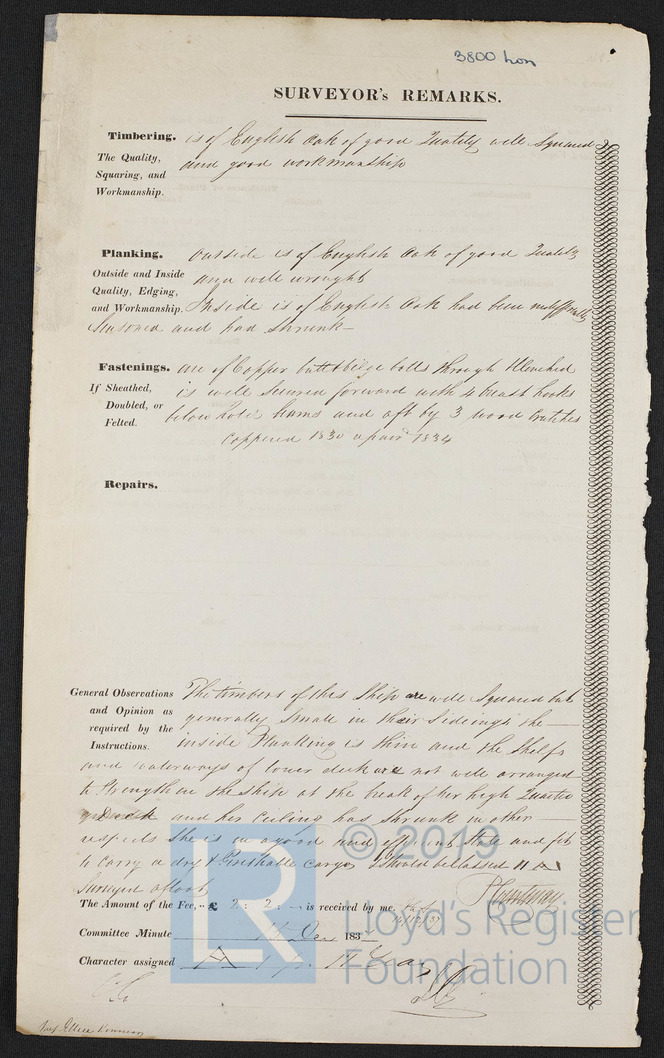 3800 Lon
SURVEYOR's REMARKS.
Timbering. is of English Oak of good Quality well Squared
The Quality, and good workmanship
Squaring, and
Workmanship.
Planking. Outside is of English Oak of good Quality
Outside and Inside and well wrought
Quality, Edging,
and Workmanship. Inside is of English Oak had been
Seasoned and had Shrunk
Fastenings. are of Copper butt & bilge bolts through Clenched
If Sheathed, is well Secured forward with 4 breast hooks
Doubled, or below and aft by 3 wood Crutches
Felted.
Coppered 1830 repair 1834
Repairs.
General Observations The timbers of this Ship are well Squared but
and Opinion as generally Small in their Sideings the
required by the inside Planking is thin and the Shelfs
Instructions.
and waterways of lower deck are not well arranged
to Strengthen the Ship at the break of her high Quarter
Deck and her Ceiling has Shrunk in other
respects She is in a good and efficient State and fit
to Carry a dry & Perishable Cargo I Should be Classed
Surveyed afloat
The Amount of the Fee, £ 2: 2: - is received by me,
Committee Minute Dec 183
Character assigned A
© 2019
LR
Lloyd's Register
Foundation